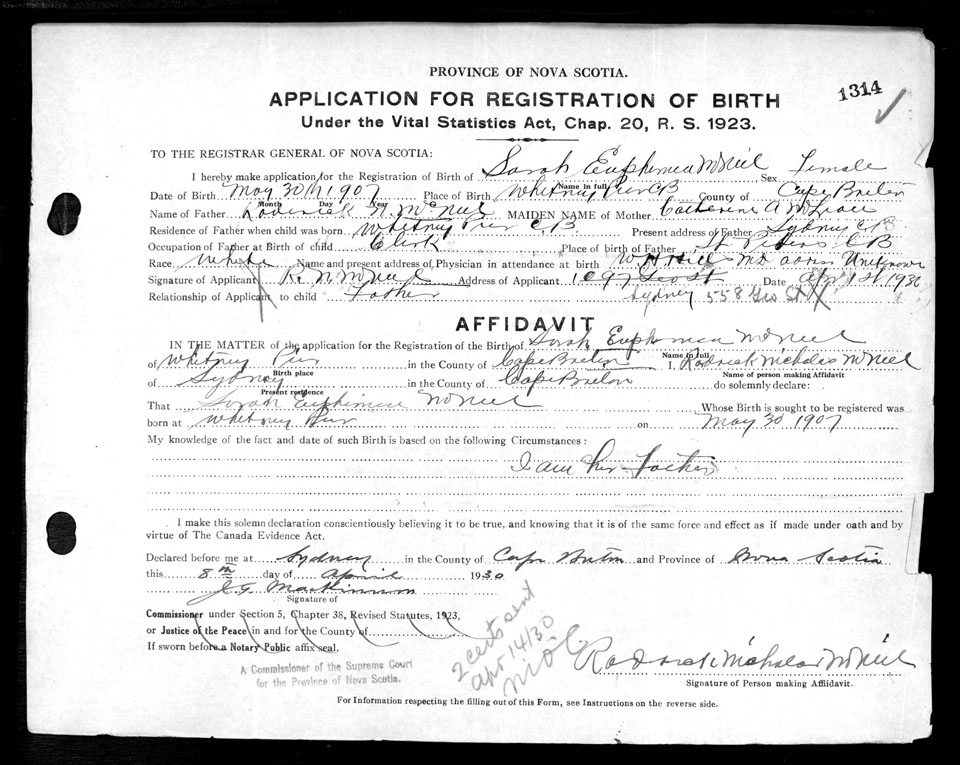 PROVINCE OF NOVA SCOTIA.
1314
APPLICATION FOR REGISTRATION OF BIRTH
Under the Vital Statistics Act, Chap. 20, R. S. 1923.
TO THE REGISTRAR GENERAL OF NOVA SCOTIA:
I hereby make application for the Registration of Birth of Sarah Euphemea McNeil Sex Female
Name in full
Date of Birth May 30 1907 Place of Birth Whitney Pier CB County of Cape Breton
Month Day Year
Name of Father Roderick N. McNeil MAIDEN NAME of Mother Catherine A McLean
Residence of Father when child was born Whitney Pier C.B. Present address of Father Sydney CB
Occupation of Father at Birth of child Clerk Place of birth of Father St Peters CB
Race White Name and present address of Physician in attendance at birth MD Unknown
Signature of Applicant R. N McNeil Address of Applicant 109 7 Geo St Date Apr 1st 1930
Relationship of Applicant to child Father Sydney 558 Geo St
AFFIDAVIT
IN THE MATTER of the application for the Registration of the Birth of Sarah Euphemea McNeil
Name in full
of Whitney Pier in the County of Cape Breton I, Roderick Nicholas McNeil
Birth place Name of person making Affidavit
of Sydney in the County of Cape Breton do solemnly declare:
Present residence
That Sarah Euphemea McNeil Whose Birth is sought to be registered was
born at Whitney Pier on May 30 1907
My knowledge of the fact and date of such Birth is based on the following Circumstances:
I am her Father
I make this solemn declaration conscientiously believing it to be true, and knowing that it is of the same force and effect as if made under oath and by
virtue of The Canada Evidence Act.
Declared before me at Sydney in the County of Cape Breton and Province of Nova Scotia
this 8th day of April 1930
J G MacKinnon
Signature of
Commissioner under Section 5, Chapter 38, Revised Statutes, 1923,
or Justice of the Peace in and for the County of
If sworn before a Notary Public affix seal.
2 certs sent
apr 14/30
A Commissioner of the Supreme Court
for the Province of Nova Scotia.
Roderick Nicholas McNeil
Signature of Person making Affidavit.
For Information respecting the filling out of this Form, see Instructions on the reverse side.